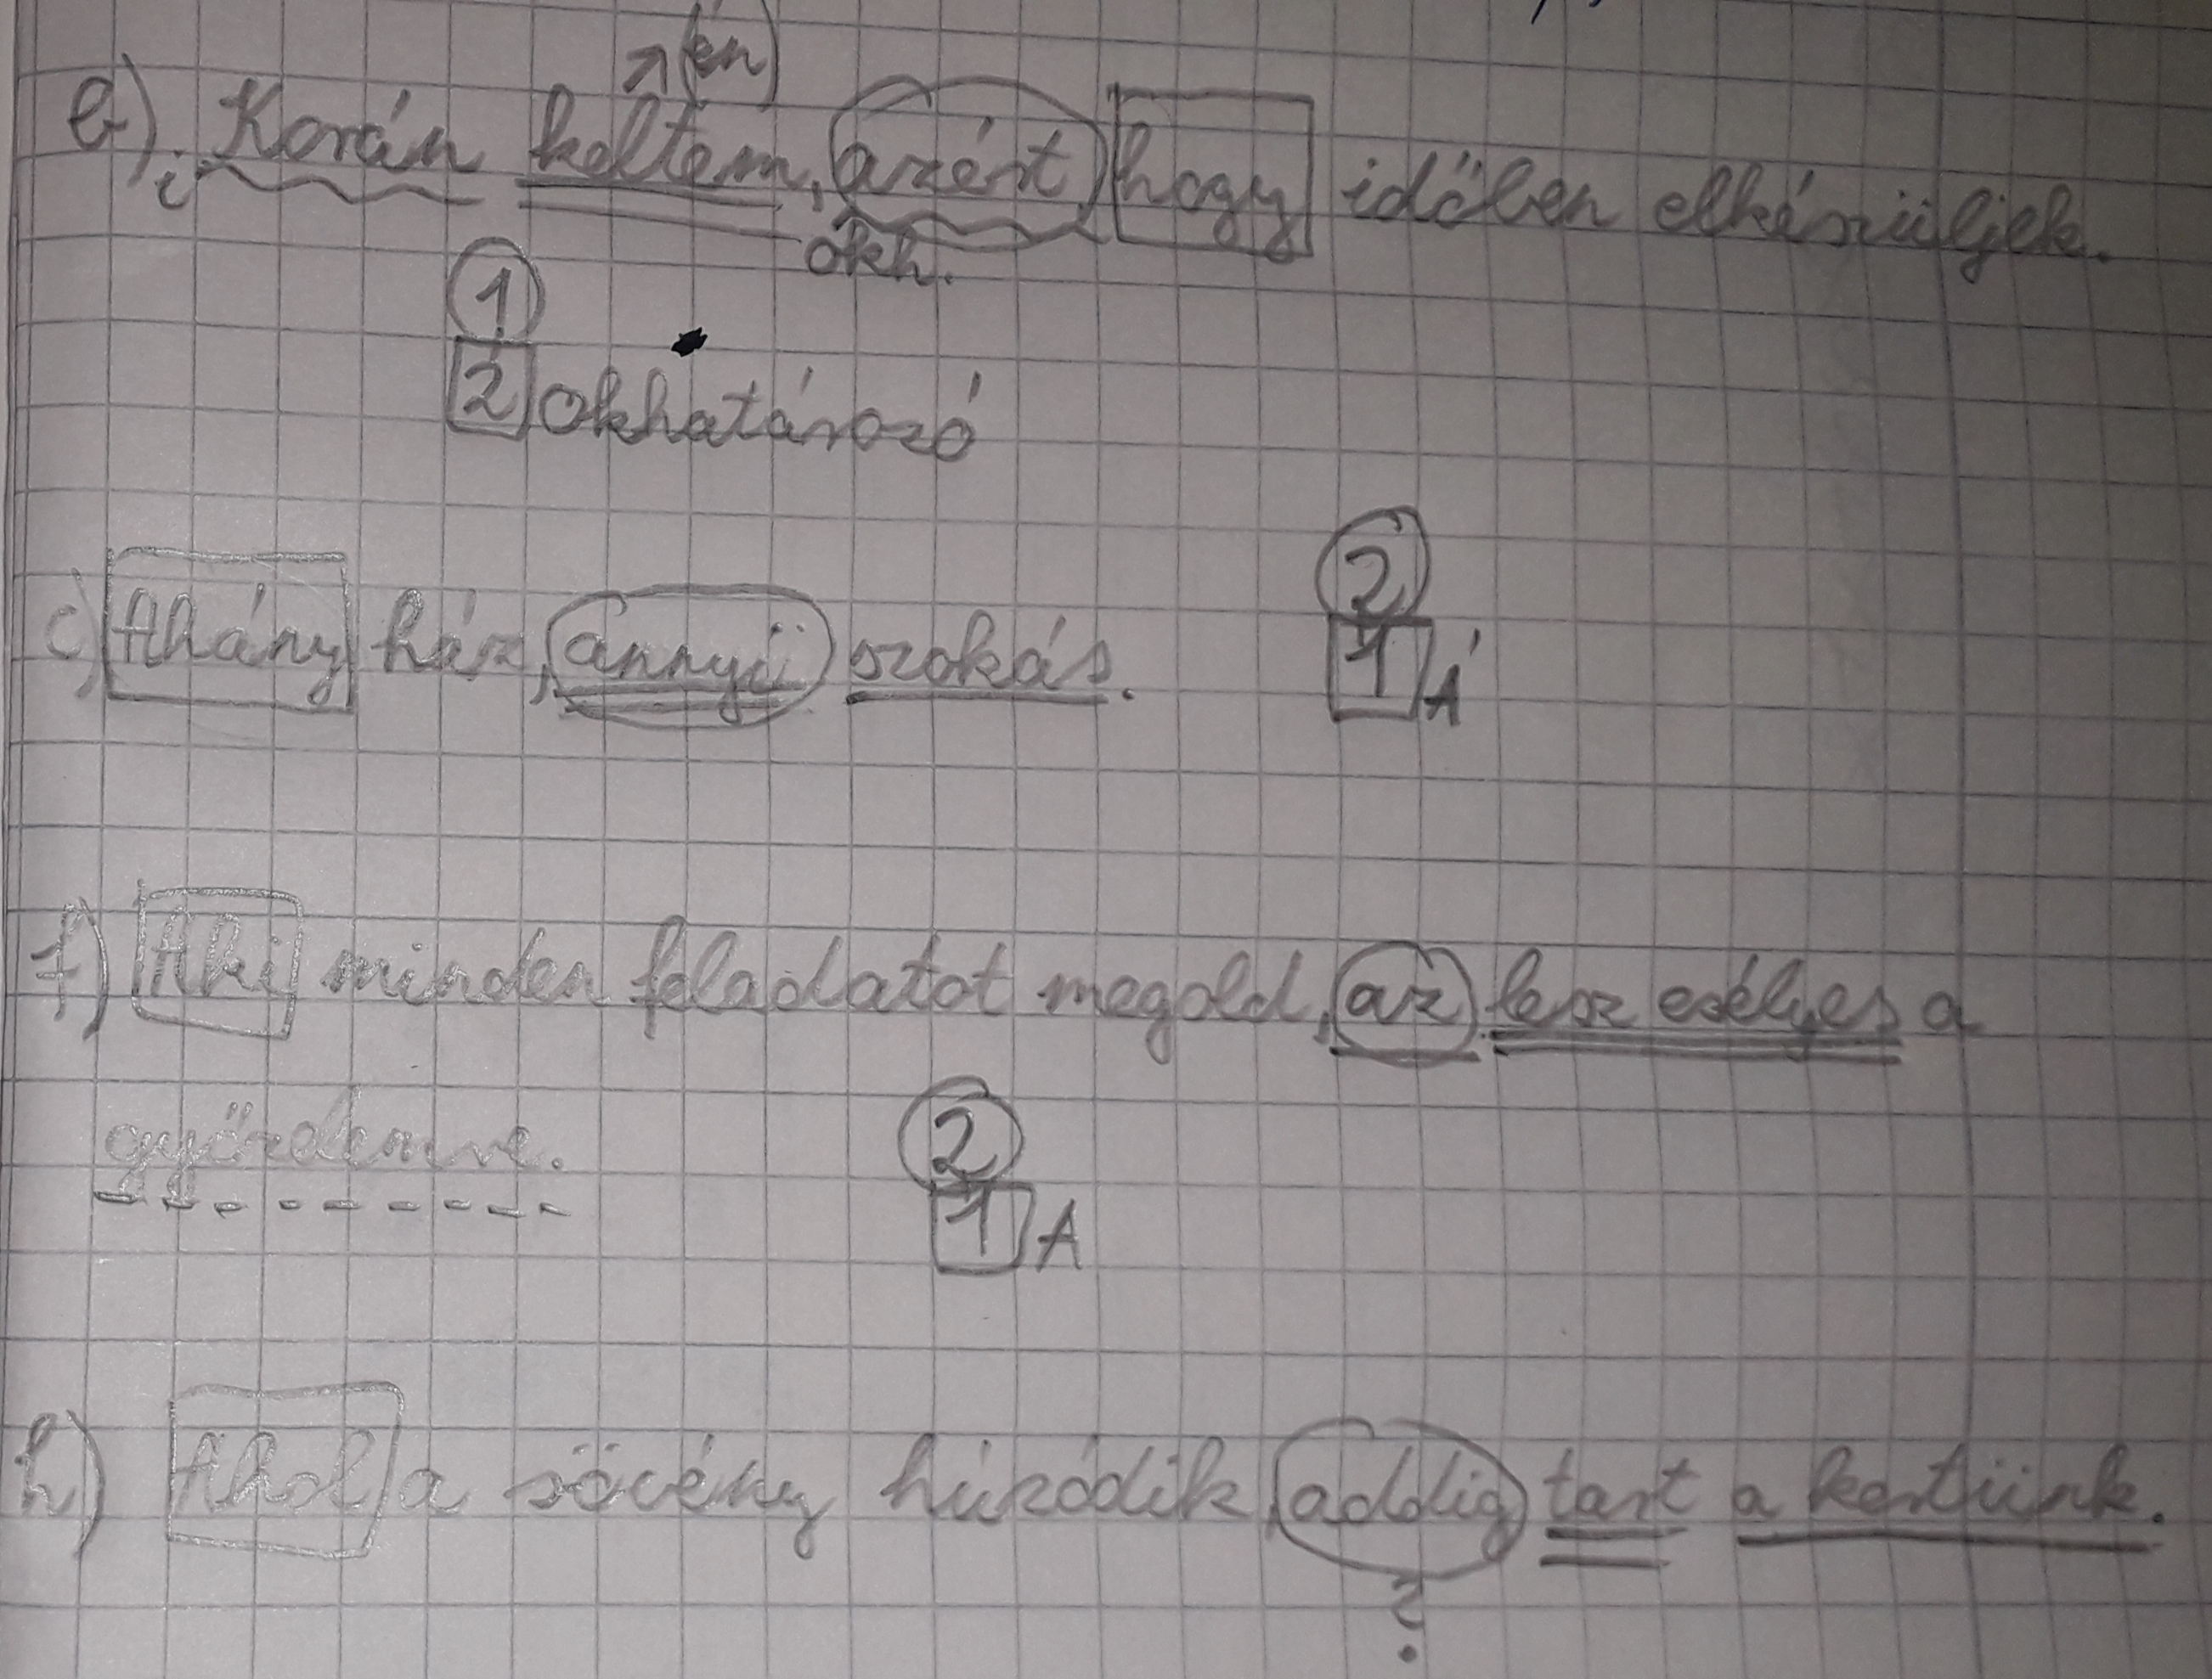 (én)
b) Korán keltem, azért hogy időben elkészüljek.
i okh.
1
2 okhatározó
2
c) Ahány ház, annyi szokás.
1 Á
f) Aki minden feladatot megold, az lesz esélyes a
győzelemre.
2
1 A
h) Ahol a sövény húzódik, addig tart a kertünk.
?